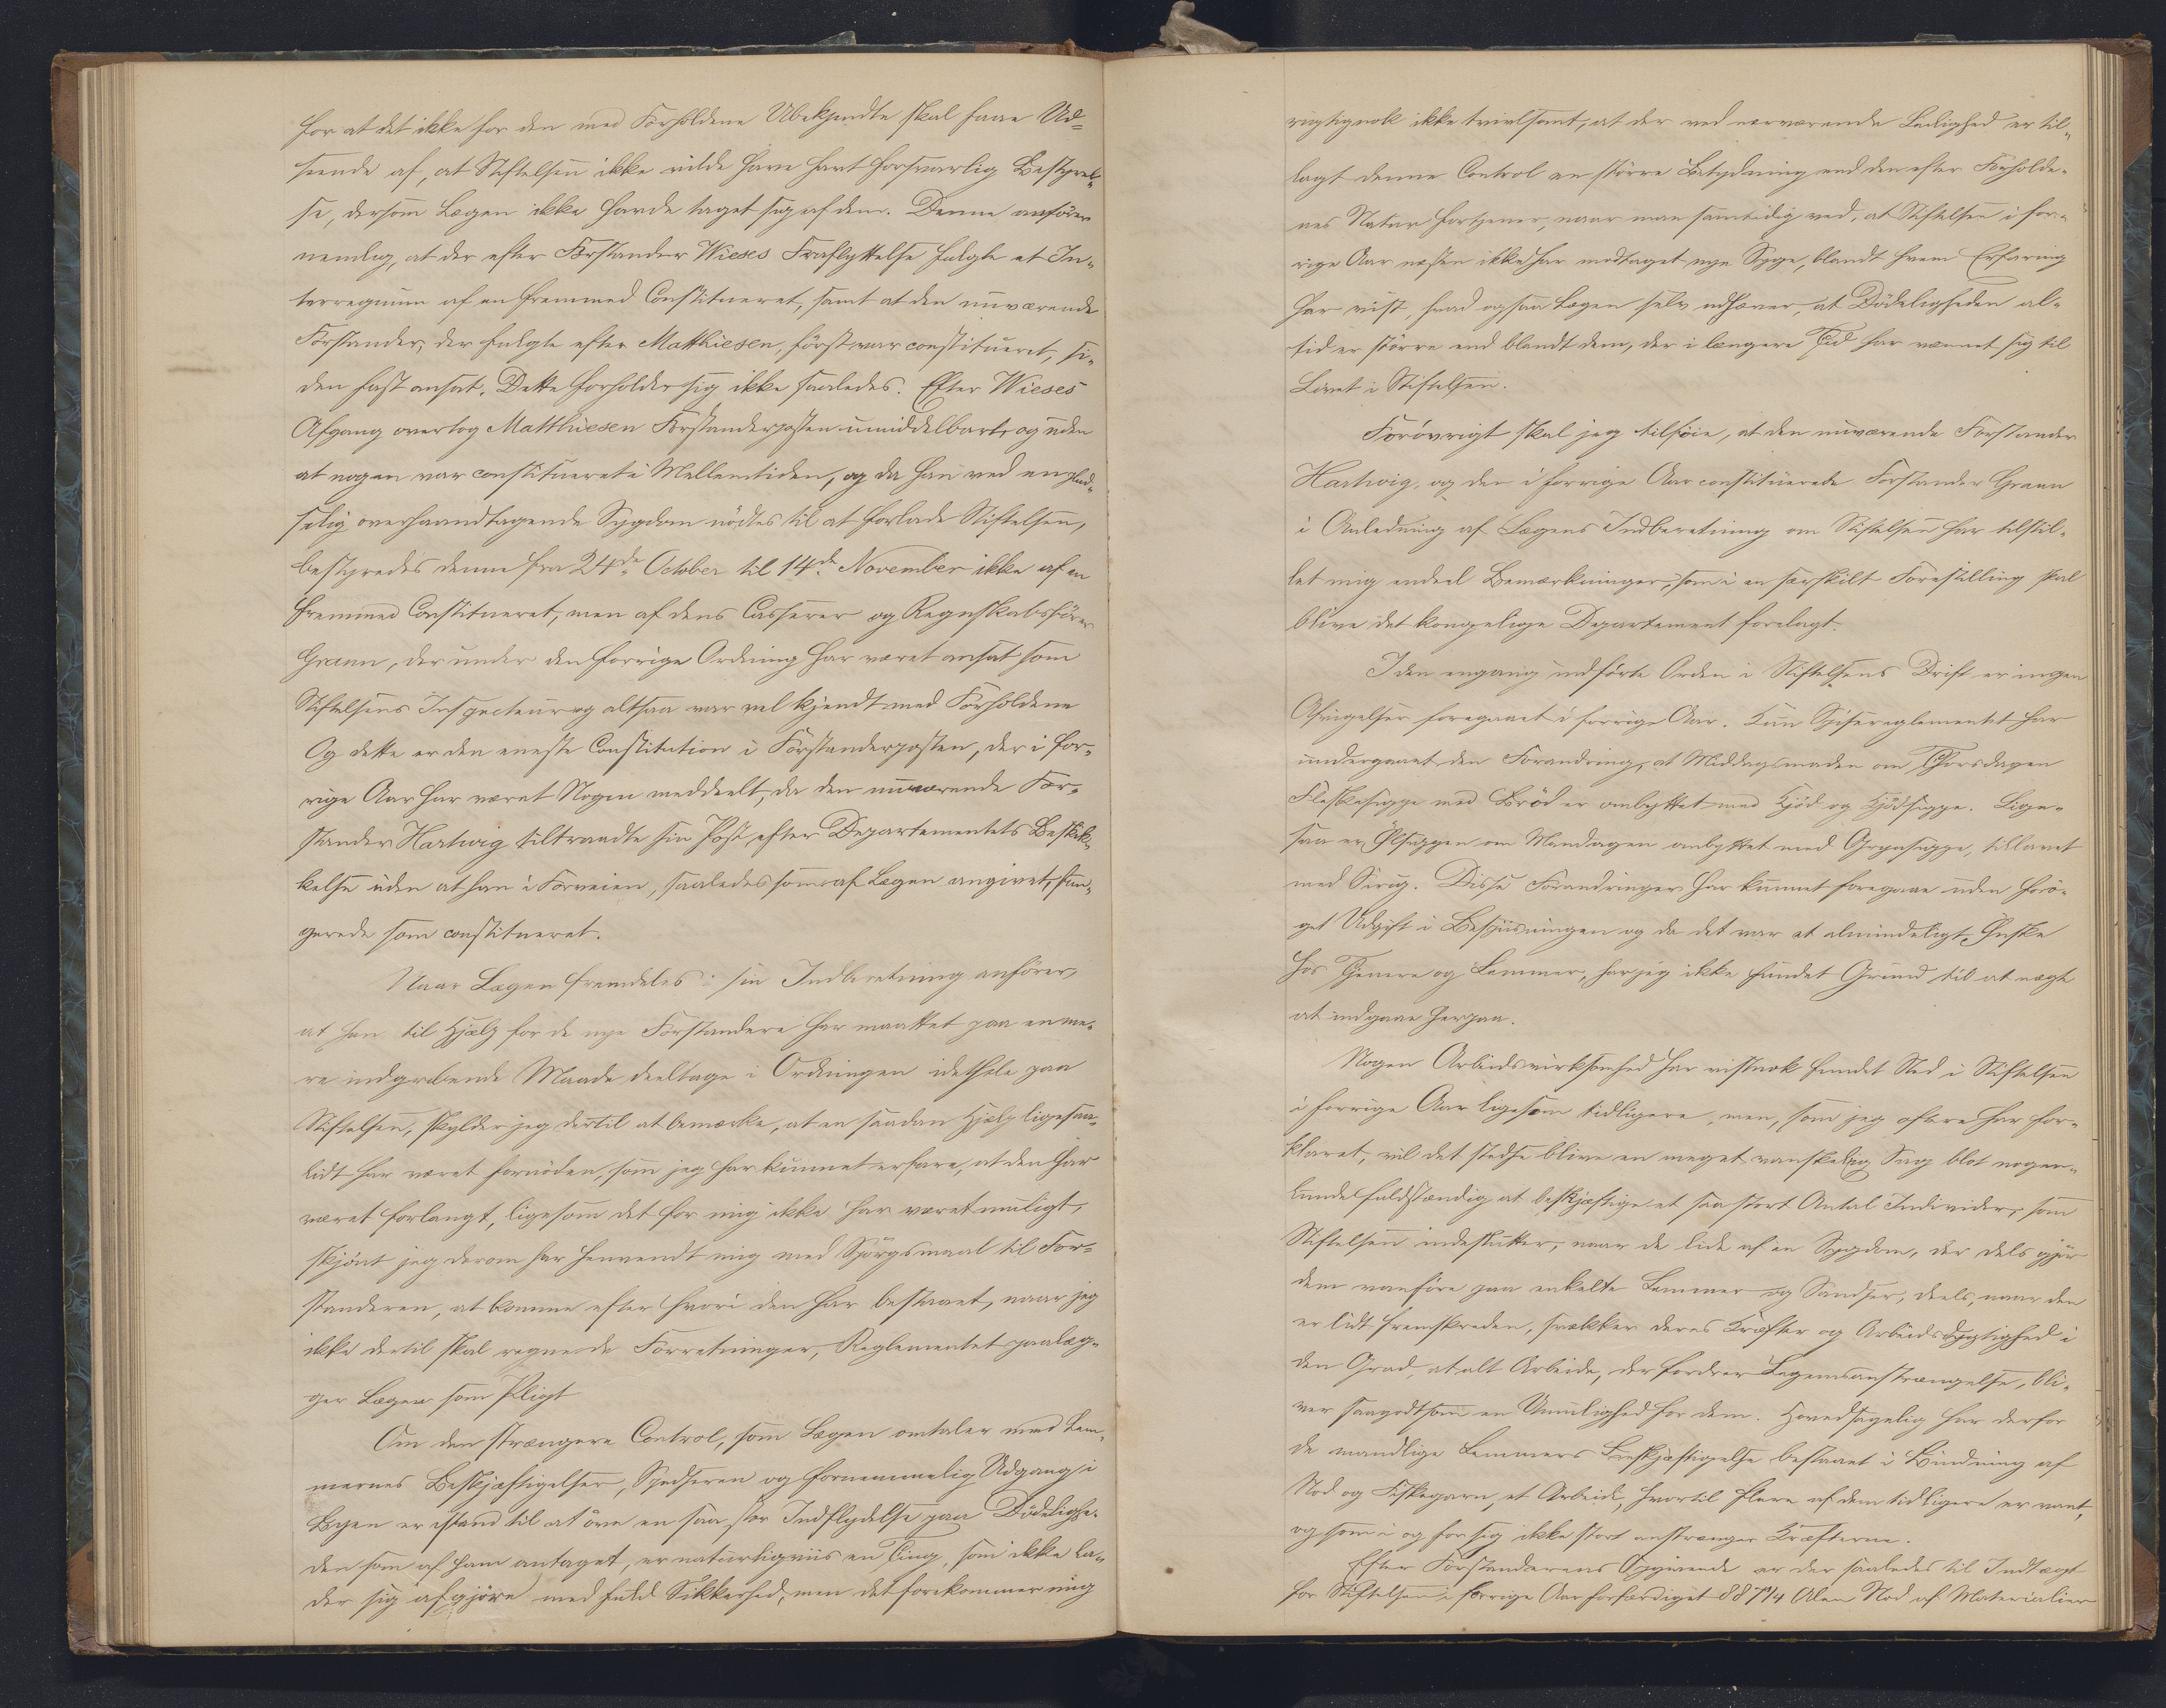 for at det ikke for den med Forholdene Ubekjendte skal faae Ud=
seende af, at Stiftelsen ikke vilde have havt forsvarlig Bestyrel-
se, dersom Lægen ikke havde taget sig af den. Denne anfører
nemlig, at der efter Forstander Wieses Fraflyttelse fulgte et In-
terregnum af en fremmed Constitueret, samt at den nuværende
Forstander, der fulgte efter Matthiesen, først var constitueret, si-
den fast ansat. Dette forholder sig ikke saaledes. Efter Wieses
Afgang overtog Matthiesen Forstanderposten umiddelbart, og uden
at nogen var constitueret i Mellemtiden, og da han ved en plud-
selig overhaandtagende Sygdom nødtes til at forlade Stiftelsen,
bestyredes denne fra 24de October til 14de November ikke af en
fremmed Constitueret, men af dens Casserer og Regnskabsfører
Grann, der under den forrige Ordning har været ansat som
Stiftelsens Inspecteur og altsaa var vel kjendt med Forholdene
Og dette er den eneste Constitution i Forstanderposten, der i for-
rige Aar har været Nogen meddeelt, da den nuværende For-
stander Hartwig tiltraadte sin Post efter Departementets Beskik-
kelse uden at han i Forveien, saaledes som af Lægen angivet, fun-
gerede som constitueret.
Naar Lægen fremdeles i sin Indberetning anfører,
at han til Hjælp for de nye Forstandere har maattet paa en me-
re indgribende Maade deeltage i Ordningen idethele paa
Stiftelsen, skylder jeg dertil at bemærke, at en saadan Hjælp ligesaa-
lidt har været fornøden, som jeg har kunnet erfare, at den har
været forlangt, ligesom det for mig ikke har været muligt,
skjønt jeg derom har henvendt mig med Spørgsmaal til For-
standeren, at komme efter hvori den har bestaaet, naar jeg
ikke dertil skal regne de Forretninger, Reglementet paalæg-
ger Lægen som Pligt
Om den strængere Control, som Lægen omtaler med Lem-
mernes Beskjæftigelser, Spadseren og fornemmelig Udgang i
Byen er istand til at øve en saa stor Indflydelse paa Dødelighe-
den som af ham antaget, er naturligviis en Ting, som ikke la-
der sig afgjøre med fuld Sikkerhed, men det forekommer mig
rigtignok ikke tvivlsomt, at der ved nærværende Leilighed er til-
lagt denne Control en større Betydning end den efter Forholde-
nes Natur fortjener, naar man samtidig ved, at Stiftelsen i for-
rige Aar næsten ikke har modtaget nye Syge, blandt hvem Erfaring
har viist, hvad ogsaa Lægen selv udhæver, at Dødeligheden al-
tid er større end blandt dem, der i længere Tid har vænnet sig til
Livet i Stiftelsen.
Forøvrigt skal jeg tilføie, at den nuværende Forstander
Hartwig, og den i forrige Aar constituerede Forstander Grann
i Anledning af Lægens Indberetning om Stiftelsen har tilstil-
let mig endeel Bemærkninger, som i en særskilt Forestilling skal
blive det kongelige Departement forelagt.
I den engang indførte Orden i Stiftelsens Drift er ingen
Afvigelser foregaaet i forrige Aar. Kun Spisereglementet har
undergaaet den Forandring, at Middagsmaden om Thorsdagen
Flesksuppe med Brød er ombyttet med Kjød og Kjødsuppe. Lige-
saa er Ølsuppen om Mandagen ombyttet med Grynsuppe, tillavet
med Sirup. Disse Forandringer har kunnet foregaae uden forø-
get Udgift i Bespiisningen og da det var et almindeligt Ønske
hos Tjenere og Lemmer, har jeg ikke fundet Grund til at nægte
at indgaae herpaa.
Nogen Arbeidsvirksomhed har vistnok fundet Sted i Stiftelsen
i forrige Aar ligesom tidligere, men, som jeg oftere har for-
klaret, vil det stedse blive en meget vanskelig Sag blot nogen-
lunde fuldstændig at beskjæftige et saa stort Antal Individer, som
Stiftelsen indeslutter, naar de lide af en Sygdom, der dels gjør
dem vanføre paa enkelte Lemmer og Sandser, deels, naar den
er lidt fremskreden, svækker deres Kræfter og Arbeidsdygtighed i
den Grad, at alt Arbeide, der fordrer Legemsanstrængelse, bli-
ver saagodtsom en Umulighed for dem. Hovedsagelig har derfor
de mandlige Lemmers Beskjæftigelse bestaaet i Binding af
Nod og Fiskegarn, et Arbeide, hvortil flere af dem tidligere er vant,
og som i og for sig ikke stort anstrænger Kræfterne.
Efter Forstanderens Opgivende er der saaledes til Indtægt
for Stiftelsen i forrige Aar forfærdiget 887 1/4 Alen Nod af Materialier